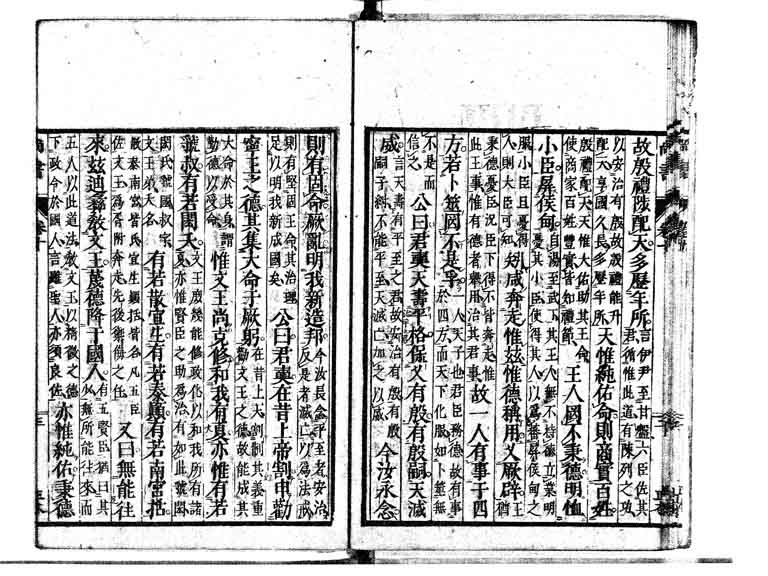 故殷禮陟配天多歷年所
言伊尹至甘盤六臣佐其
君循惟此道有陳列之功
以安治有殷故殷禮能升
配天享國久長多歷年所
天惟純佑命則商實百姓
殷禮配天天惟大佑助其王命
使商家百姓豐實皆知禮節
王人罔不秉德明恤
小臣屏侯甸
自湯至武丁其王人無不持德立業明
憂其小臣使得其人以為蕃屏侯甸之
服小臣且憂得
人則大臣可知
矧咸奔走惟茲惟德稱用乂厥辟
王
猶
秉德憂臣況臣下得不皆奔走惟
此王事惟有德者舉用治其君事
故一人有事于四
方若卜筮罔不是孚
一人天子也君臣務德故有事
於四方而天下化服如卜筮無
不是而
信之
公曰君奭天壽平格保乂有殷有殷嗣天滅
威
言天壽有平至之君故安治有殷有殷
嗣子紂不能平至天滅亡加之以威
今汝永念
則有固命厥亂明我新造邦
今汝長念平至者安治
反是者滅亡以為法戒
則有堅固王命其治理
足以明我新成國矣
公曰君奭在昔上帝割申勸
寧王之德其集大命于厥躬
在昔上天割制其義重
勸文王之德故能成其
大命於其身謂
勤德以受命
惟文王尚克修和我有夏亦惟有若
虢叔有若閎夭
文王庶幾能修政化以和我所有諸
夏亦惟賢臣之助為治有如此虢閎
閎氏虢國叔字
文王弟夭名
有若散宜生有若泰顛有若南宮括
散泰南宮皆氏宜生顛括皆名凡五臣
佐文王為胥附奔走先後禦侮之任
又曰無能往
來茲迪彝教文王蔑德降于國人
有五賢臣猶曰其
少無所能往來而
五人以此道法教文王以精微之德
下政令於國人言雖聖人亦須良佐
亦惟純佑秉德
尚書
卷十